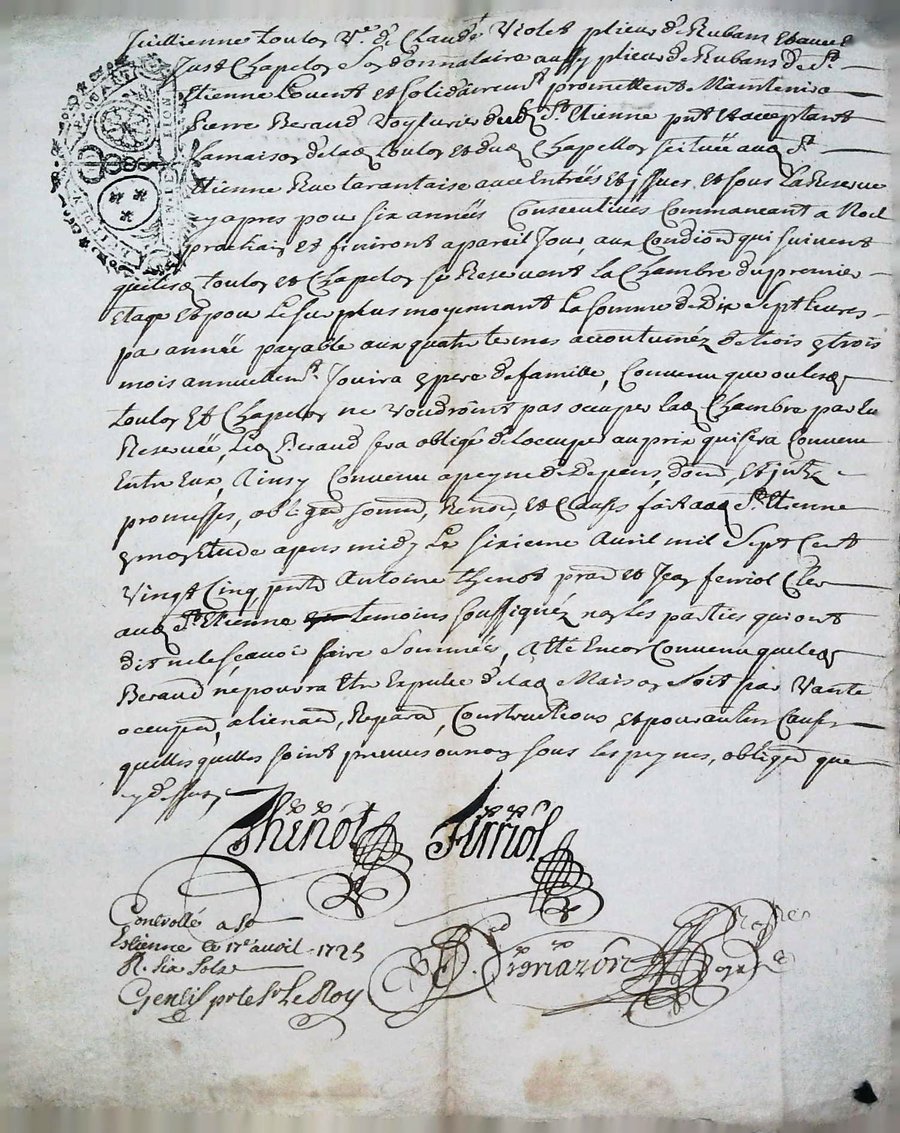 Jullienne toulon Ve. de Claude Violet plieur de Rubans et avec
Just Chapelon son donnataire aussy plieur de Rubans de St.
Etienne Louent et solidairemt. promettent Maintenir a
Pierre Beraud Voyturier dud St. Etienne pnt et acceptant
La maison de lad toulon et dud Chapellon scituée aud St.
Etienne Rue tarantaise avec Entrées et issues et sous La Reserve
cy apres pour six années Consecutives Commancant a Noel
prochain et finiront a pareil Jour, aux Condions qui suivent
que lesd toulon et Chapelon se Reservent La Chambre du premier
Etage et pour Le surplus moyennant La somme de Dix Sept livres
par année payable aux quatre termes accoutumez de trois en trois
mois annuellemt. Jouira en pere de famille, Convenu que ou lesd
toulon Et Chapelon ne voudroint pas occuper lad Chambre par Eux
Reservée, Led Beraud sera obligé de l'occuper au prix qui sera Convenu
Entre Eux, Ainsy Convenu a peyne de Depens,
promesses, obligaons, Renons, et Clauses fait aud St. Etienne
apres midy Le sixieme Avril mil Sept Cent
Vingt Cinq pnts Antoine thenot et Jean ferriol Clerc
aud St. Etienne temoins soussignéz non les parties qui ont
dit ne le scavoir faire Sommées, Atté Encor Convenu que led
Beraud ne pourra Etre Expulsé de lad Maison Soit par Vante
occupaon, alienaon, Reparaon, Constructions, et pour autres Causes
quelles quelles soint preveues ou non sous les peynes, obligaons que
cy dessus
Thenot Ferriol
Controllé a St
Estienne le 17e avril 1725
R. six sols
Genlis pr le Sr Le Roy